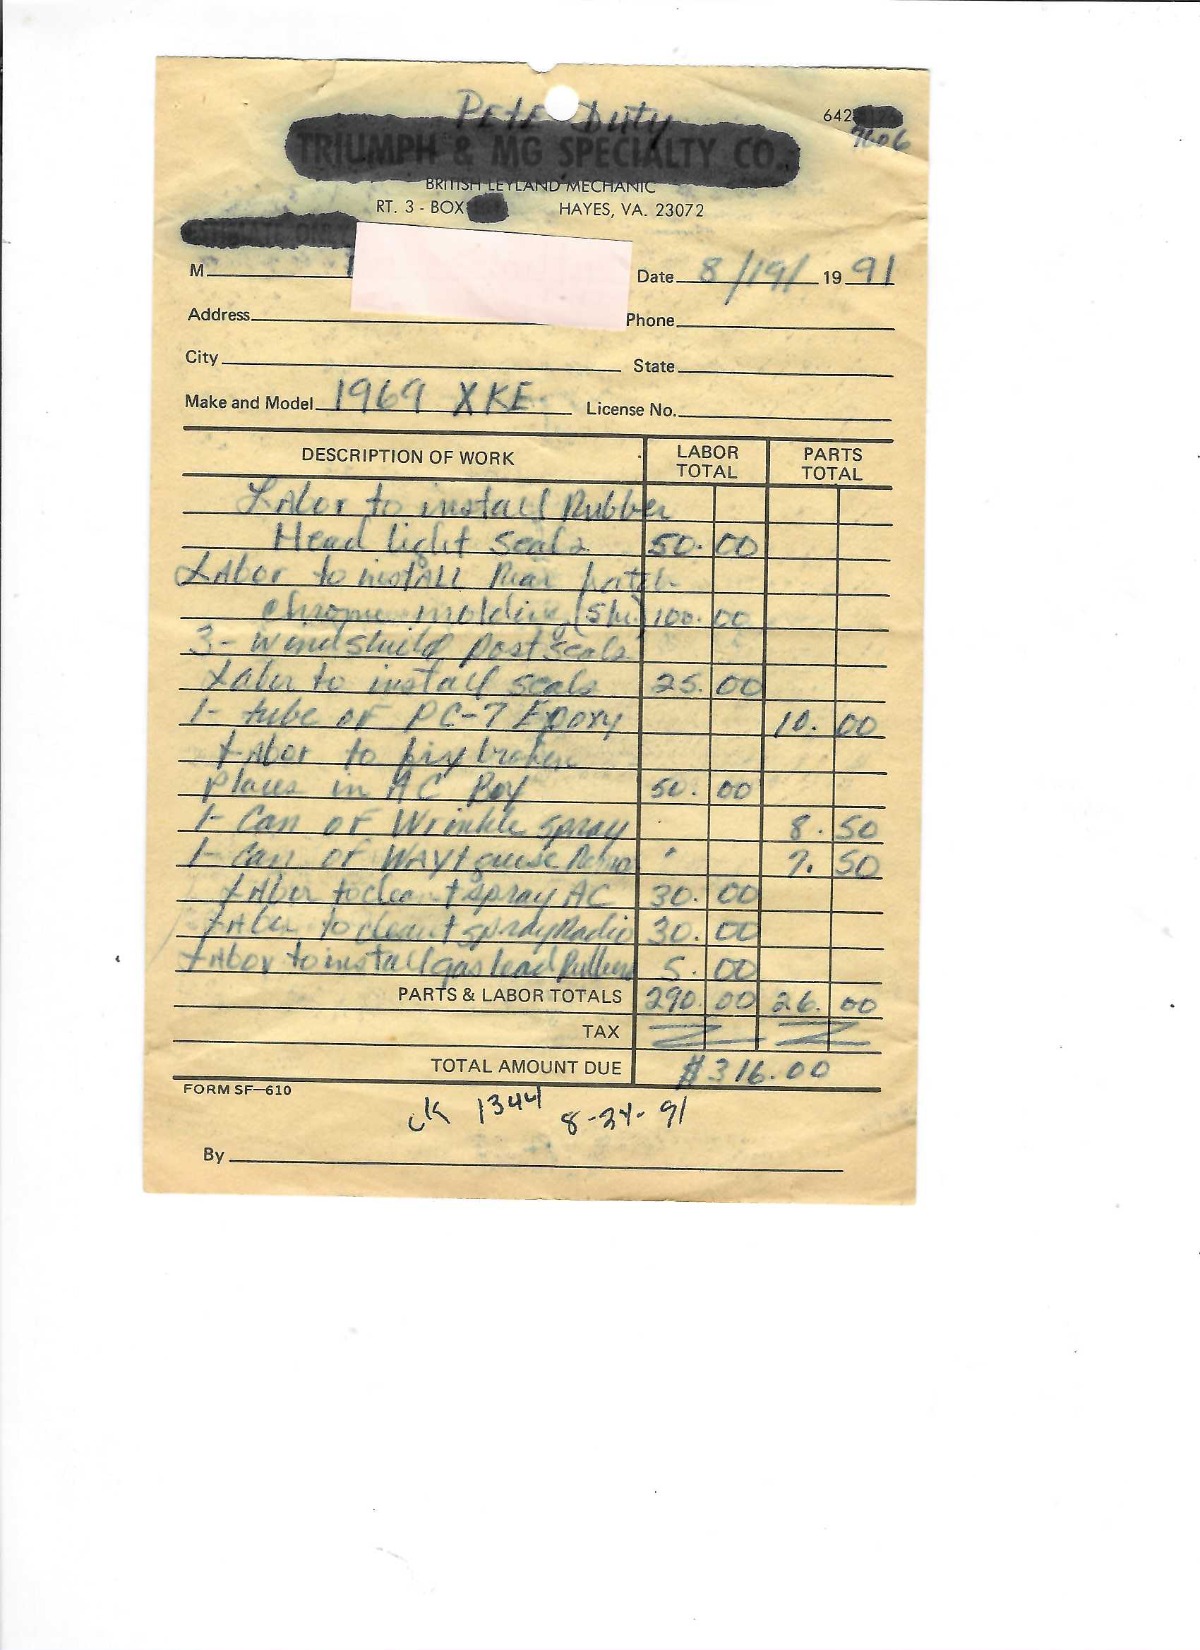 Pete Duty
642
9606
TRIUMPH & MG SPECIALTY CO.
BRITISH LEYLAND MECHANIC
RT. 3 - BOX HAYES, VA. 23072
M
Date 8/19/ 19 91
Address Phone
City State
Make and Model 1969 XKE License No.
DESCRIPTION OF WORK LABOR TOTAL PARTS TOTAL
Labor to install Rubber
Head light seals 50.00
Labor to install Rear hatch
chrome molding 100.00
3- windshield post seals
Labor to install seals 25.00
1- tube of PC-7 Epoxy 10.00
Labor to fix broken
places in AC Box 50.00
1- Can of Wrinkle spray 8.50
1- Can of 7.50
Labor to clean & spray AC 30.00
Labor to clean & spray Radio 30.00
Labor to install gas lead 5.00
PARTS & LABOR TOTALS 290.00 26.00
TAX
TOTAL AMOUNT DUE $316.00
FORM SF-610
ck 1344 8-24-91
By